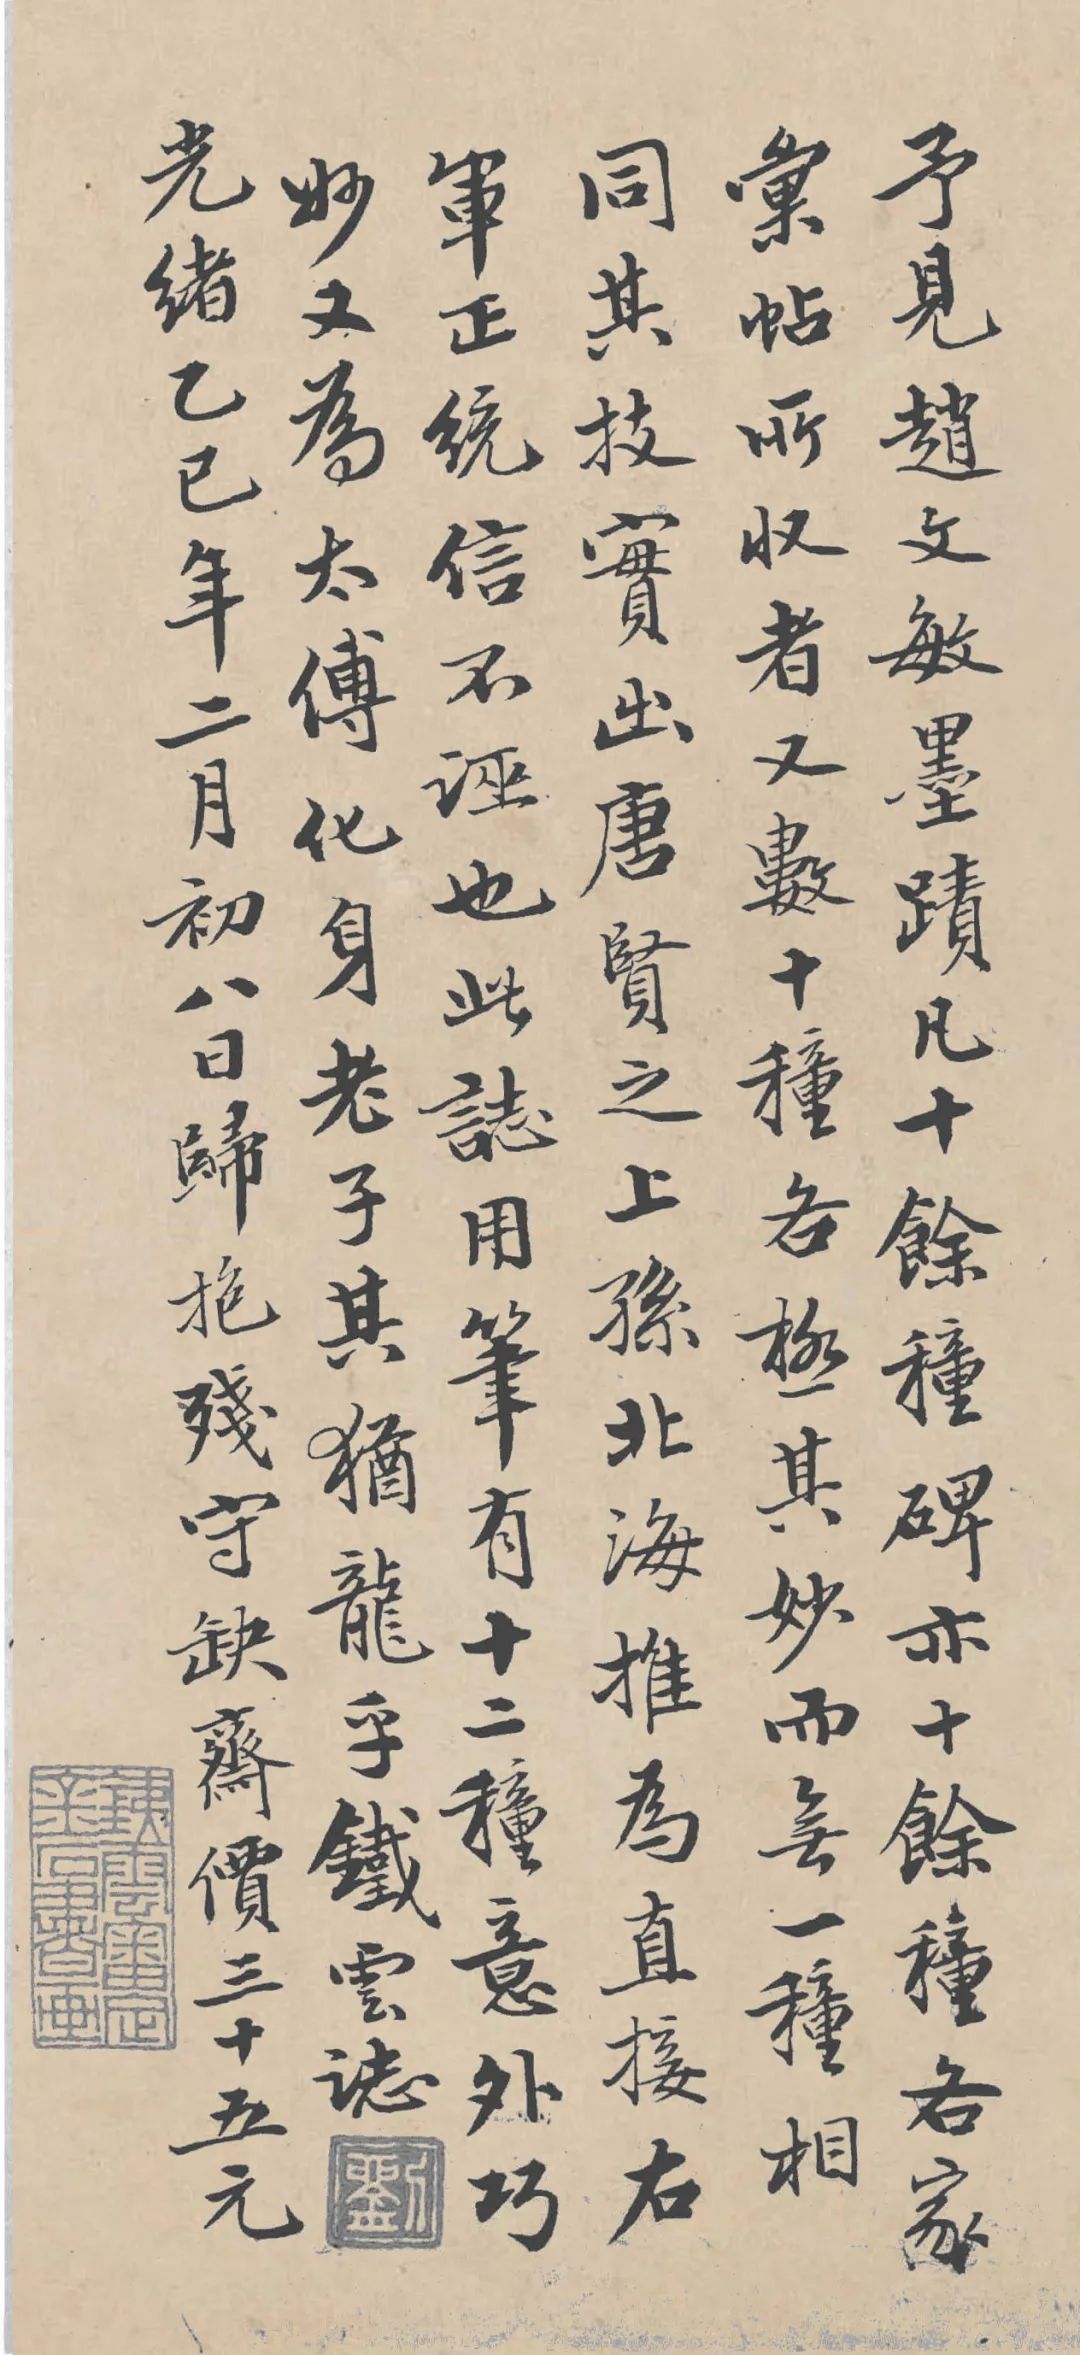 予見趙文敏墨蹟凡十餘種碑亦十餘種各家
彙帖所収者又數十種各極其妙而無一種相
同其技實出唐賢之上孫北海推為直接右
軍正統信不誣也此誌用筆有十二種意外巧
妙又為太傅化身老子其猶龍乎鐵雲誌
劉
光緒乙巳年二月初八日歸抱殘守缺齋價三十五元
鐵雲審定
金石書畫